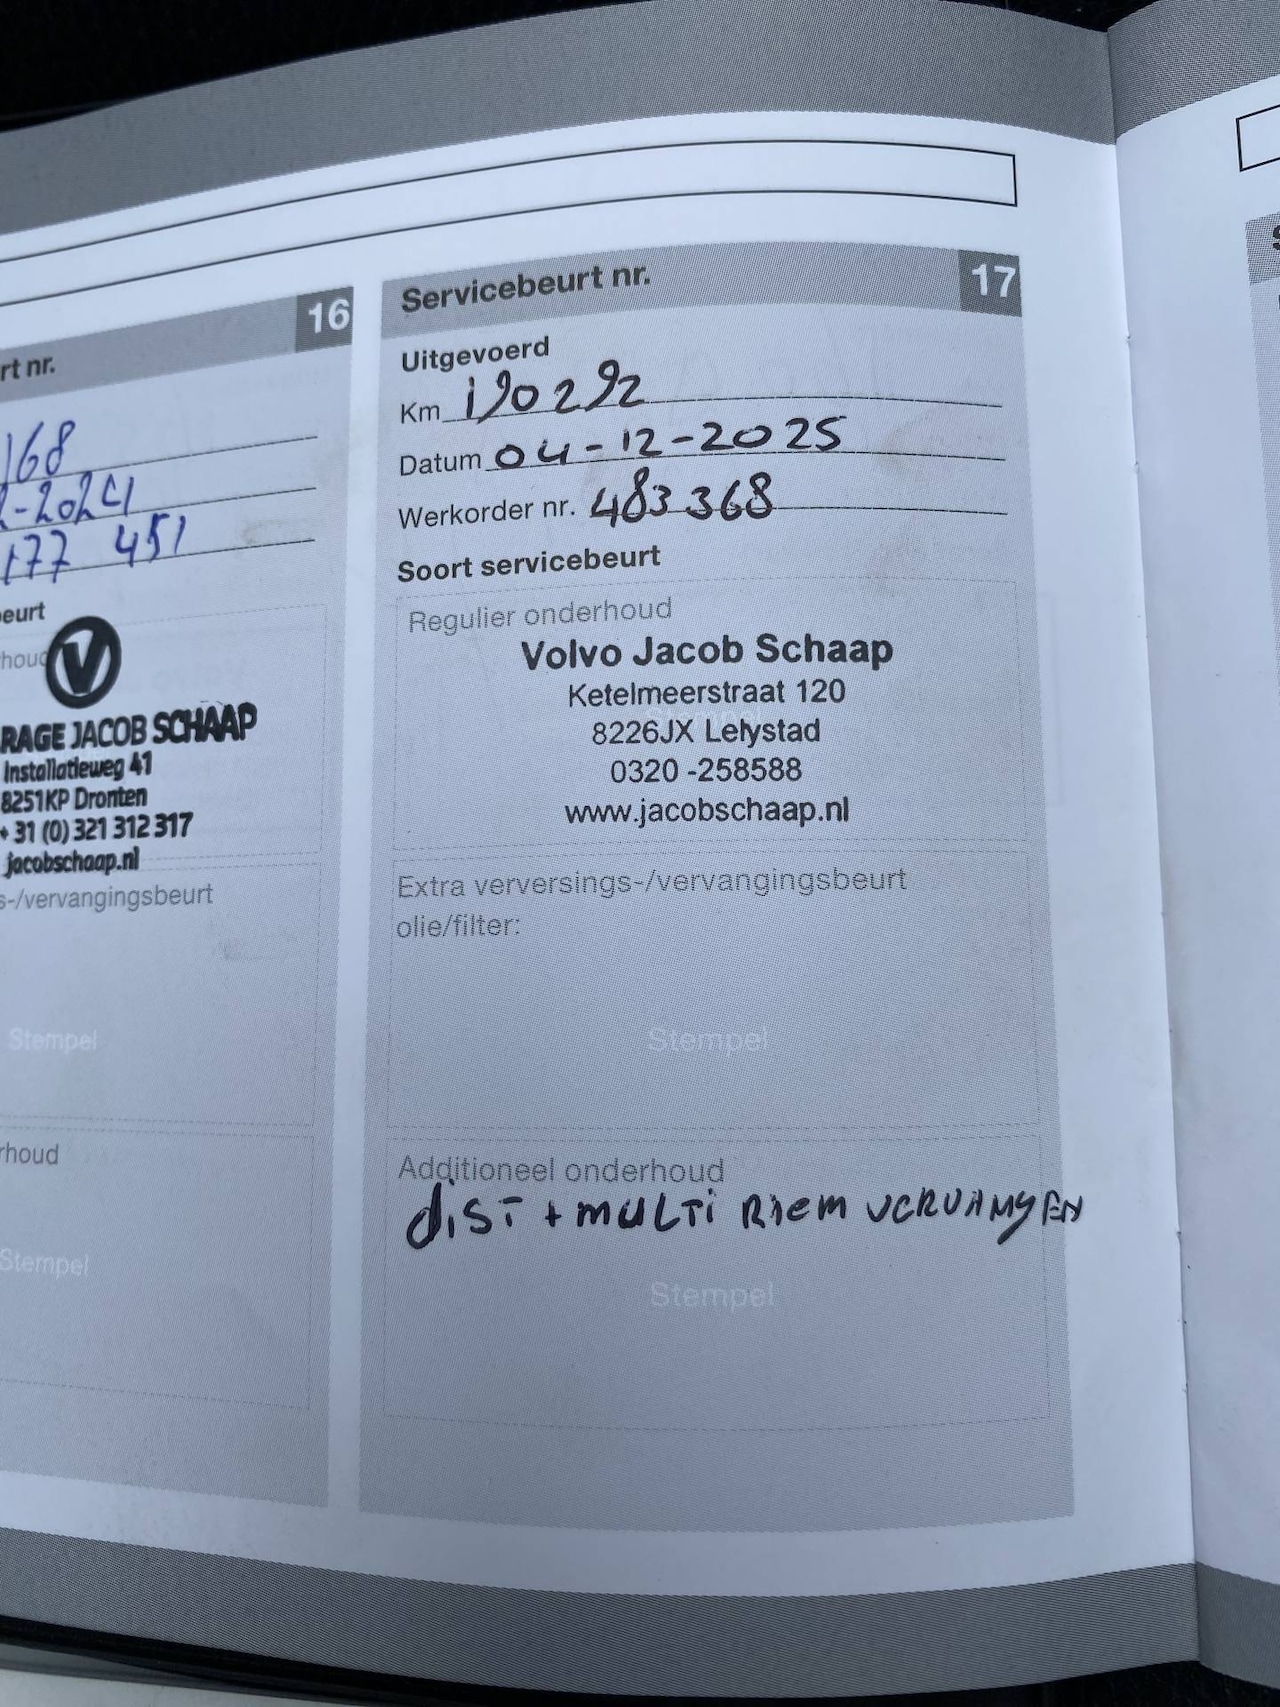 16
rt nr.
168
2-2024
177 451
beurt
houd
V
RAGE JACOB SCHAAP
Installatieweg 41
8251KP Dronten
+ 31 (0) 321 312 317
jacobschaap.nl
s-/vervangingsbeurt
Stempel
rhoud
Stempel
Servicebeurt nr. 17
Uitgevoerd
Km 190292
Datum 04-12-2025
Werkorder nr. 483368
Soort servicebeurt
Regulier onderhoud
Volvo Jacob Schaap
Ketelmeerstraat 120
Stempel
8226JX Lelystad
0320 -258588
www.jacobschaap.nl
Extra verversings-/vervangingsbeurt
olie/filter:
Stempel
Additioneel onderhoud
DIST + MULTI RIEM VERVANGEN
Stempel